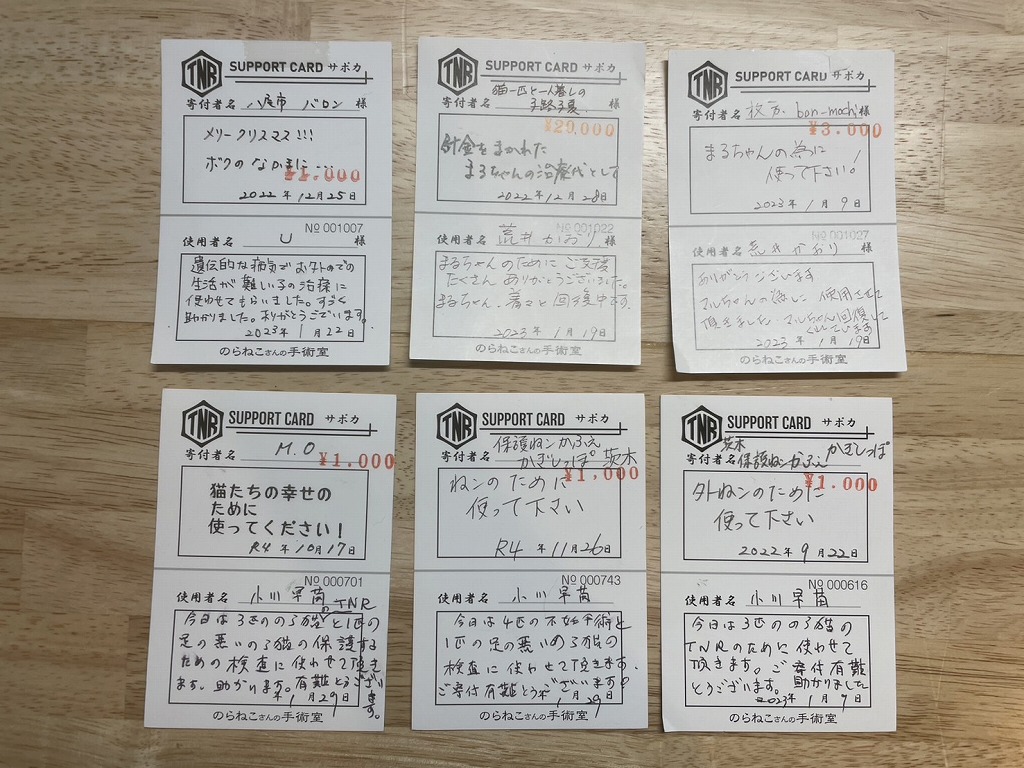 TNR SUPPORT CARD サポカ
寄付者名 八尾市 バロン 様
メリークリスマス!!!
ボクのなかまに…
¥1,000
2022年12月25日
No 001007
使用者名 U 様
遺伝的な病気でお外での
生活が難しい子の治療に
使わせてもらいました。すごく
助かりました。ありがとうございます。
2023年1月22日
のらねこさんの手術室
TNR SUPPORT CARD サポカ
猫一匹と一人暮しの
寄付者名 子路子夏 様
¥29,000
針金をまかれた
まるちゃんの治療代として
2022年12月28日
No 001022
使用者名 荒井かおり 様
まるちゃんのためにご支援
たくさんありがとうございました。
まるちゃん、着々と回復中です。
2023年1月19日
のらねこさんの手術室
TNR SUPPORT CARD サポカ
寄付者名 枚方 bon-mochi 様
¥3,000
まるちゃんの為に
使って下さい!
2023年1月9日
No 001027
使用者名 荒井かおり 様
ありがとうございます
マルちゃんの為に使用させて
頂きました。マルちゃん回復して
くれています
2023年1月19日
のらねこさんの手術室
TNR SUPPORT CARD サポカ
寄付者名 M.O
¥1,000
猫たちの幸せの
ために
使ってください!
R4年10月17日
No 000701
使用者名 小川早苗
今日は3匹ののら猫のTNRと1匹の
足の悪いのら猫の保護する
ための検査に使わせて頂き
ます。助かります。有難とうございます。
1月29日
のらねこさんの手術室
TNR SUPPORT CARD サポカ
保護ねこかふぇ
寄付者名 かぎしっぽ 茨木
¥1,000
ねこのために
使って下さい
R4年11月26日
No 000743
使用者名 小川早苗
今日は4匹の不妊手術と
1匹の足の悪いのら猫の
検査に使わせて頂きます。
ご寄付有難とうございます!
1月29
のらねこさんの手術室
TNR SUPPORT CARD サポカ
茨木
寄付者名 保護ねこかふぇ かぎしっぽ
¥1,000
外ねこのために
使って下さい
2022年9月22日
No 000616
使用者名 小川早苗
今日は3匹ののら猫の
TNRのために使わせて
頂きます。ご寄付有難
とうございます。助かりました
2023年1月9日
のらねこさんの手術室